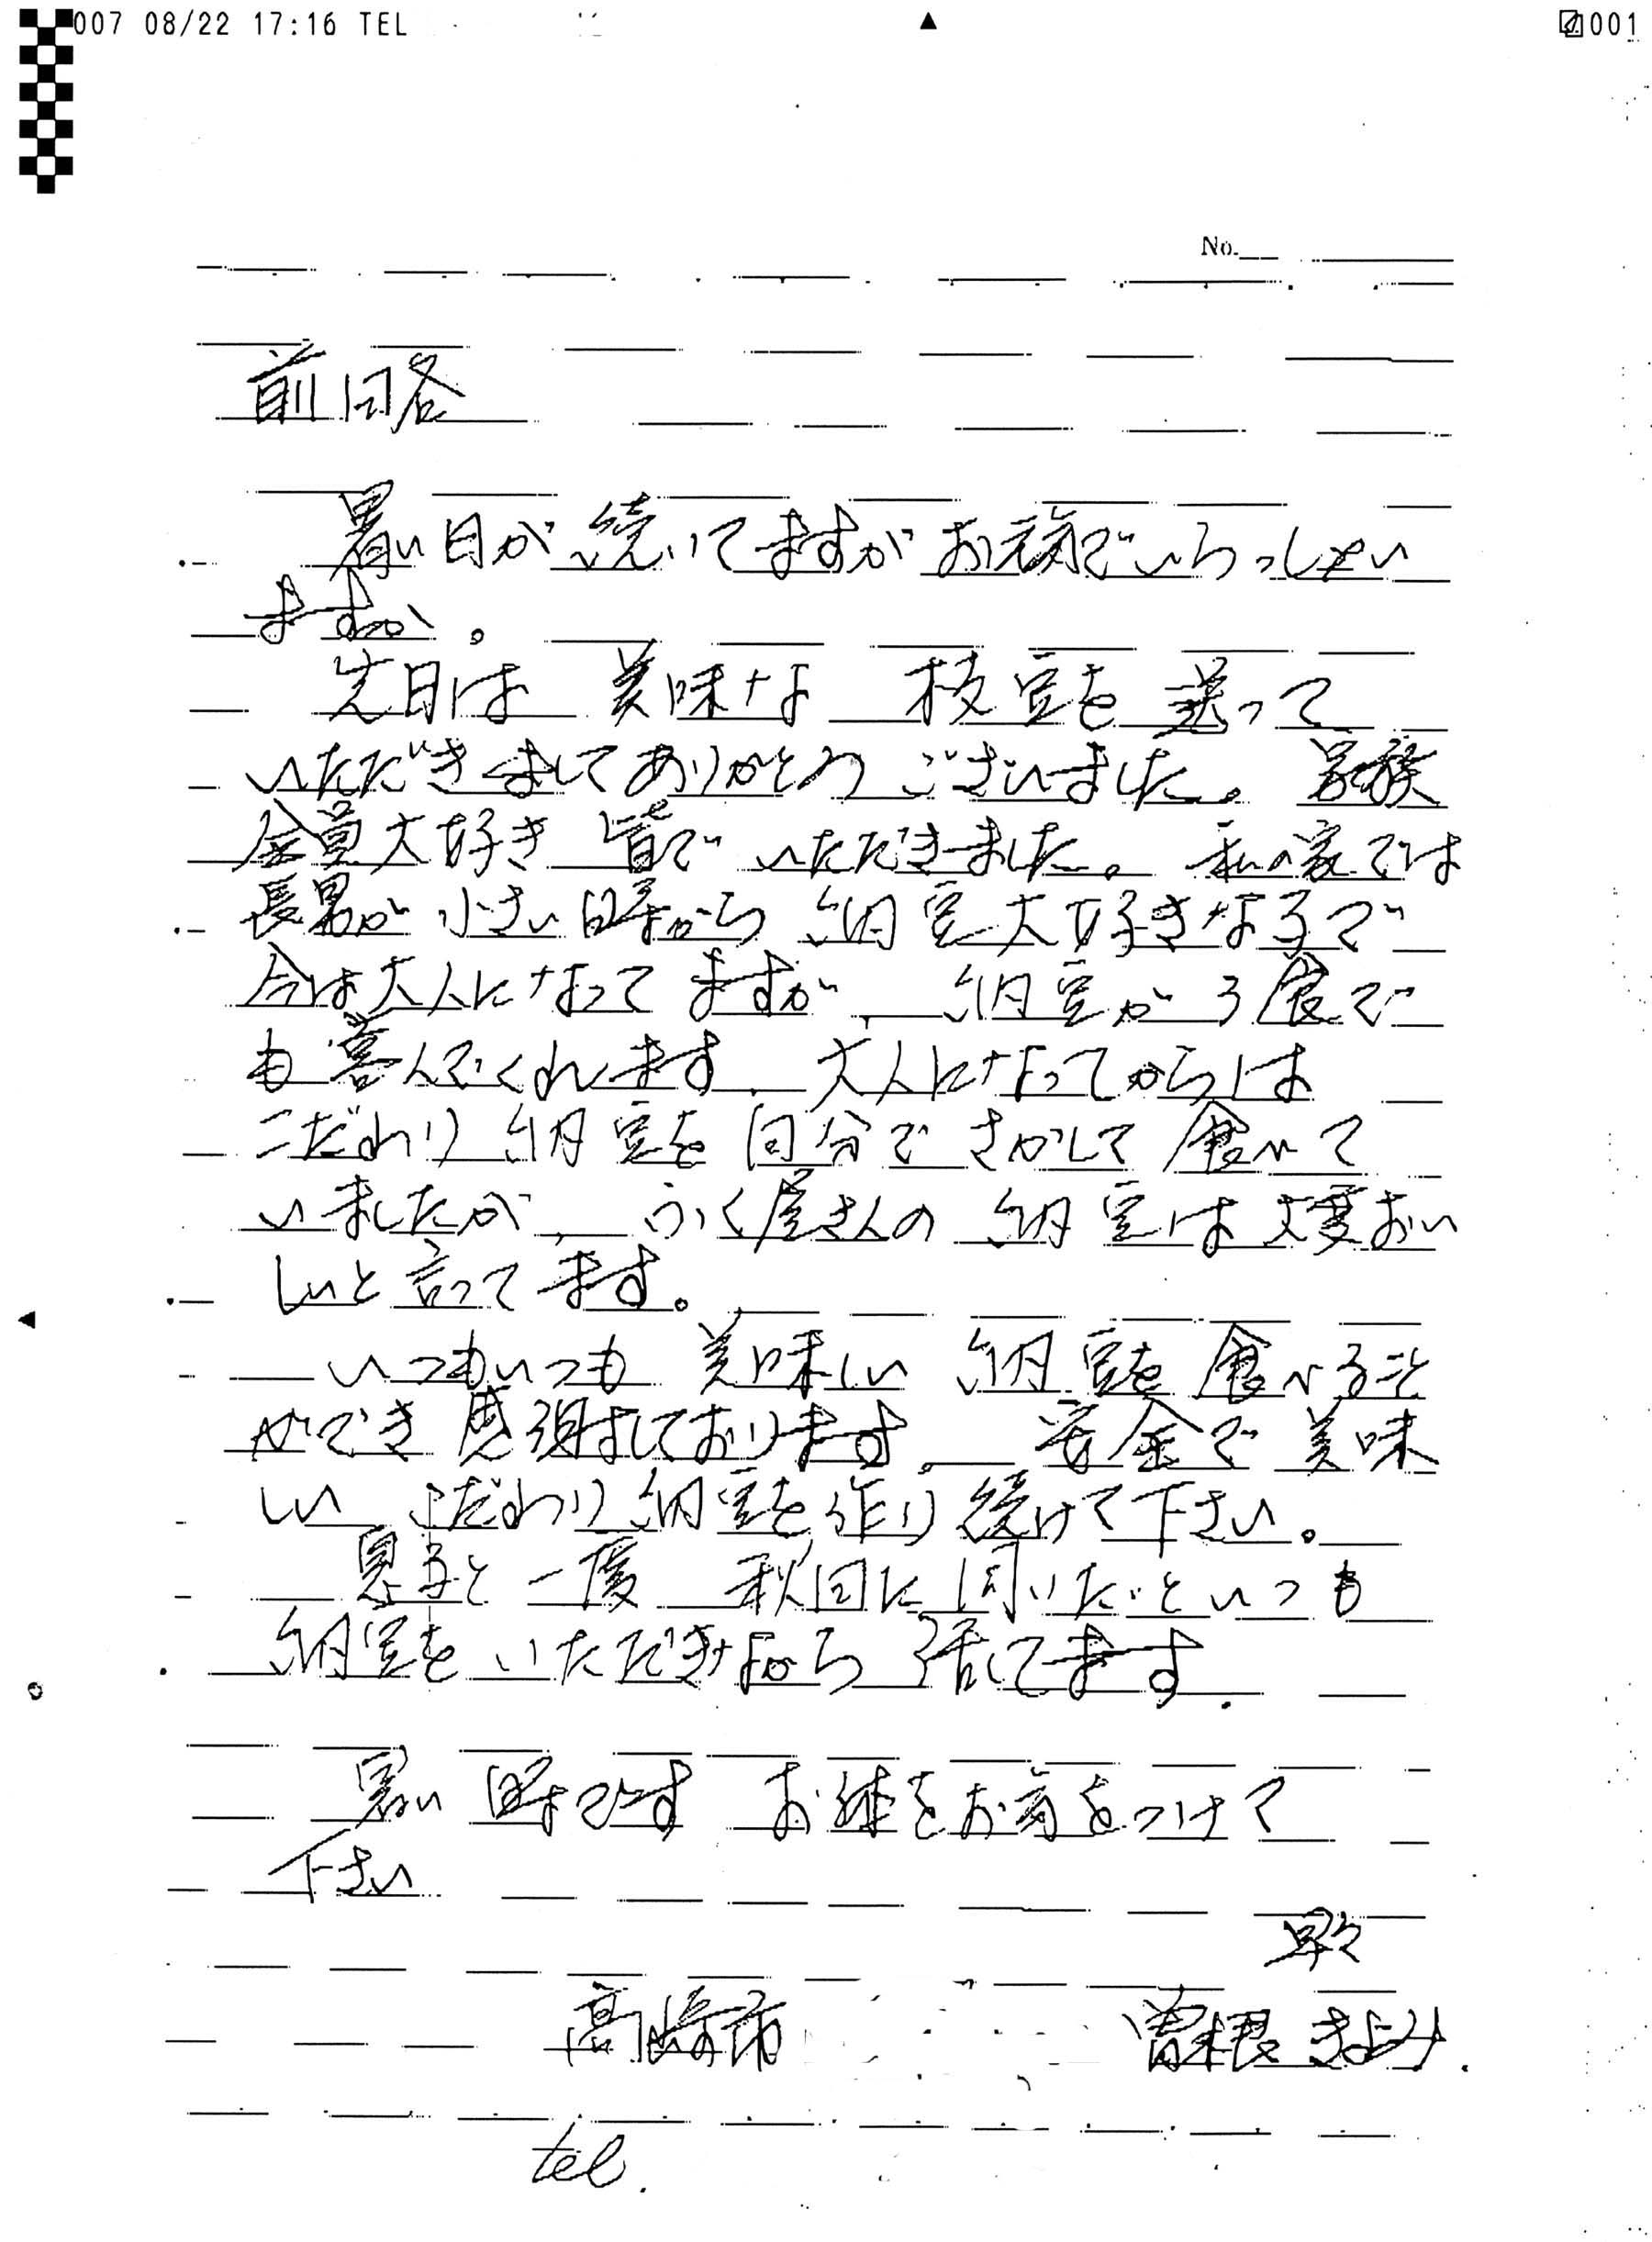 007 08/22 17:16 TEL
001
No.
前略
暑い日が続いてますがお元気でいらっしゃい
ますか。
先日は 美味な 枝豆を 送って
いただきましてありがとう ございました。 家族
全員大好き 皆で いただきました。 私の家では
長男が 小さい時から 納豆大好きな子で
今は大人になって ますが、 納豆が3食で
も喜んでくれます 大人になってからは
こだわり納豆を自分でさがして食べて
いましたが、ふく屋さんの納豆は大変おい
しいと言ってます。
いつもいつも 美味しい 納豆を食べるこ
ができ感謝しております。 安全で美味
しい こだわり納豆を作り続けて下さい。
息子と一度 秋田に伺いたいといつも
納豆を いただきながら 話してます.
暑い 時です お体をお気をつけて
下さい
早々
高崎市 曽根 きよみ.
tel.